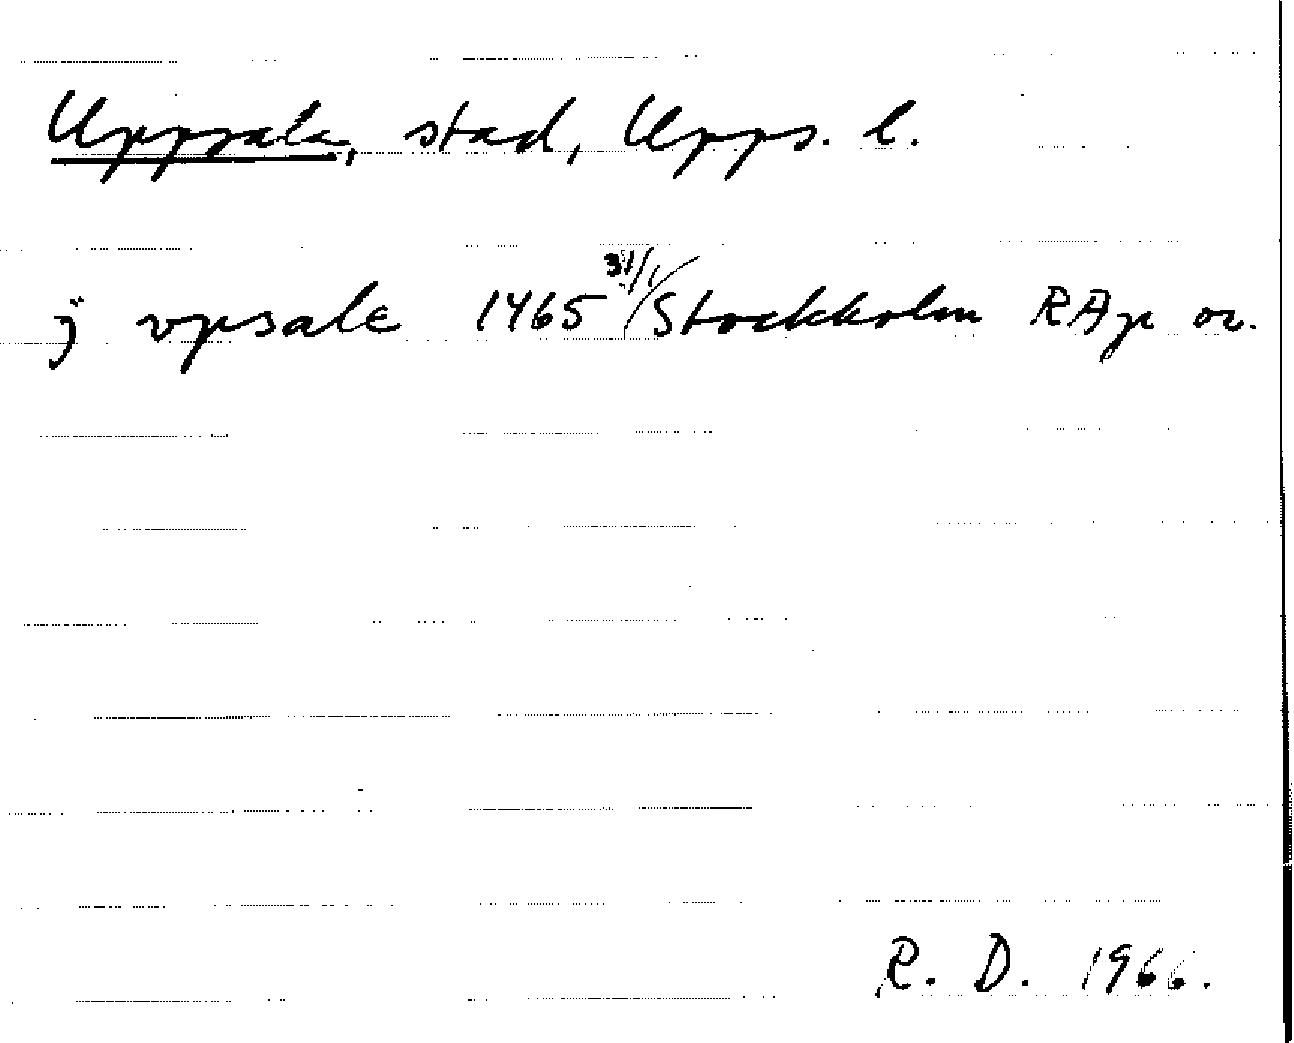 Uppsala, stad, Upps. l.
ÿ vpsale 1465 31/1 Stockholm RAp or.
R. D. 1966.